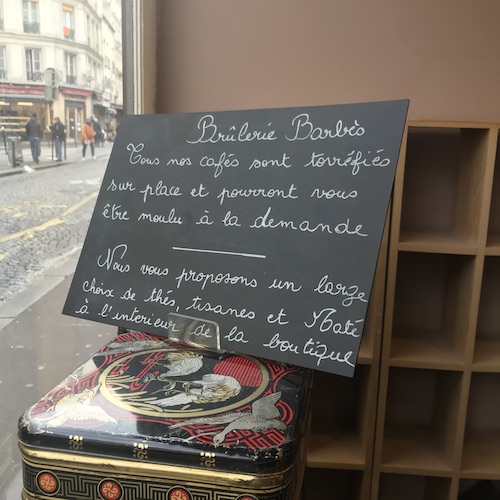 Brûlerie Barbès
Tous nos cafés sont torréfiés
sur place et pourront vous
être moulu à la demande
Nous vous proposons un large
choix de thés, tisanes et Maté
à l'interieur de la boutique